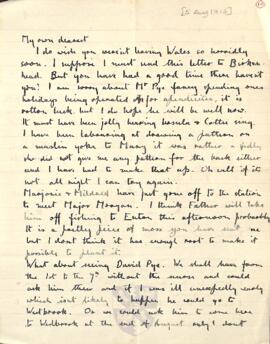 [5 Aug 1916]
My own dearest
I do wish you weren't leaving Wales so horribly
soon. I suppose I must send this letter to Birken-
head. But you have had a good time there haven't
you? I am sorry about Mr Pye fancy spending ones
holidays being operated for apendicitis, it is
rotten luck but I do hope he will be well now.
It must have been jolly hearing Ursula & Cottie sing.
I have been labouring at drawing a pattern on
a muslin yoke to Many it was rather a fiddle
she did not give me any pattern for the back either
and I have had to make that up. Oh well if its
not all right I can try again.
Marjorie & Mildred have just gone off to the station
to meet Major Morgan. I think Father will take
him off fishing to Eaton this afternoon probably.
It is a pretty piece of moss you have sent me
but I dont think it has enough root to make it
possible to plant it.
What about seeing David Pye. We shall have from
the 1st to the 7th without the nurse and could
ask him then and if I was ill unexpectedly early
which isnt likely to happen he could go to
Westbrook. Or we could ask him to come here
to Westbrook at the end of August only I dont